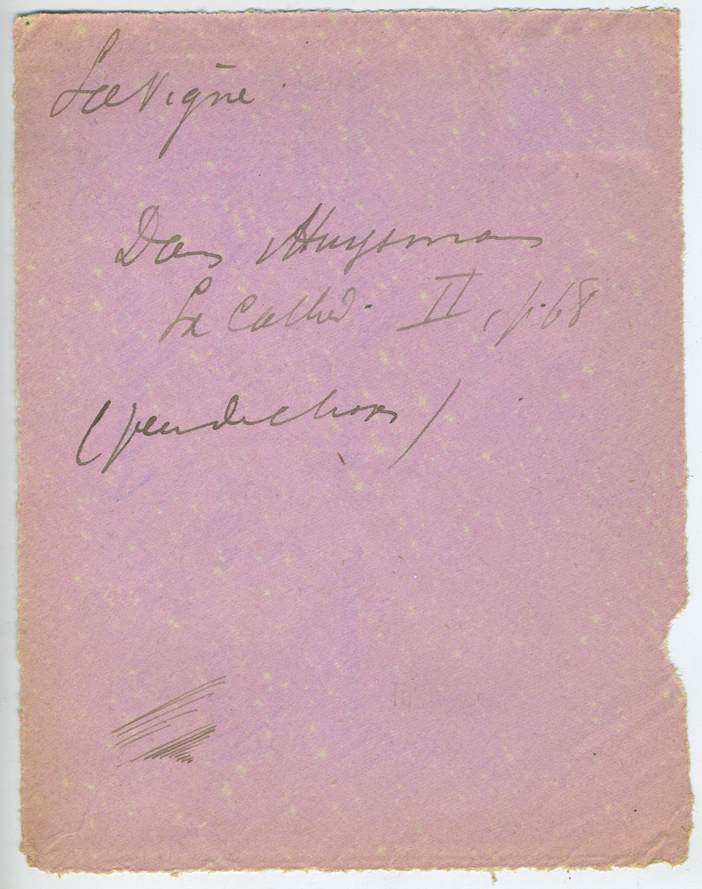 La Vigne.
Dans Huysmans
La Cathéd. II, p. 68
(peu de chose)